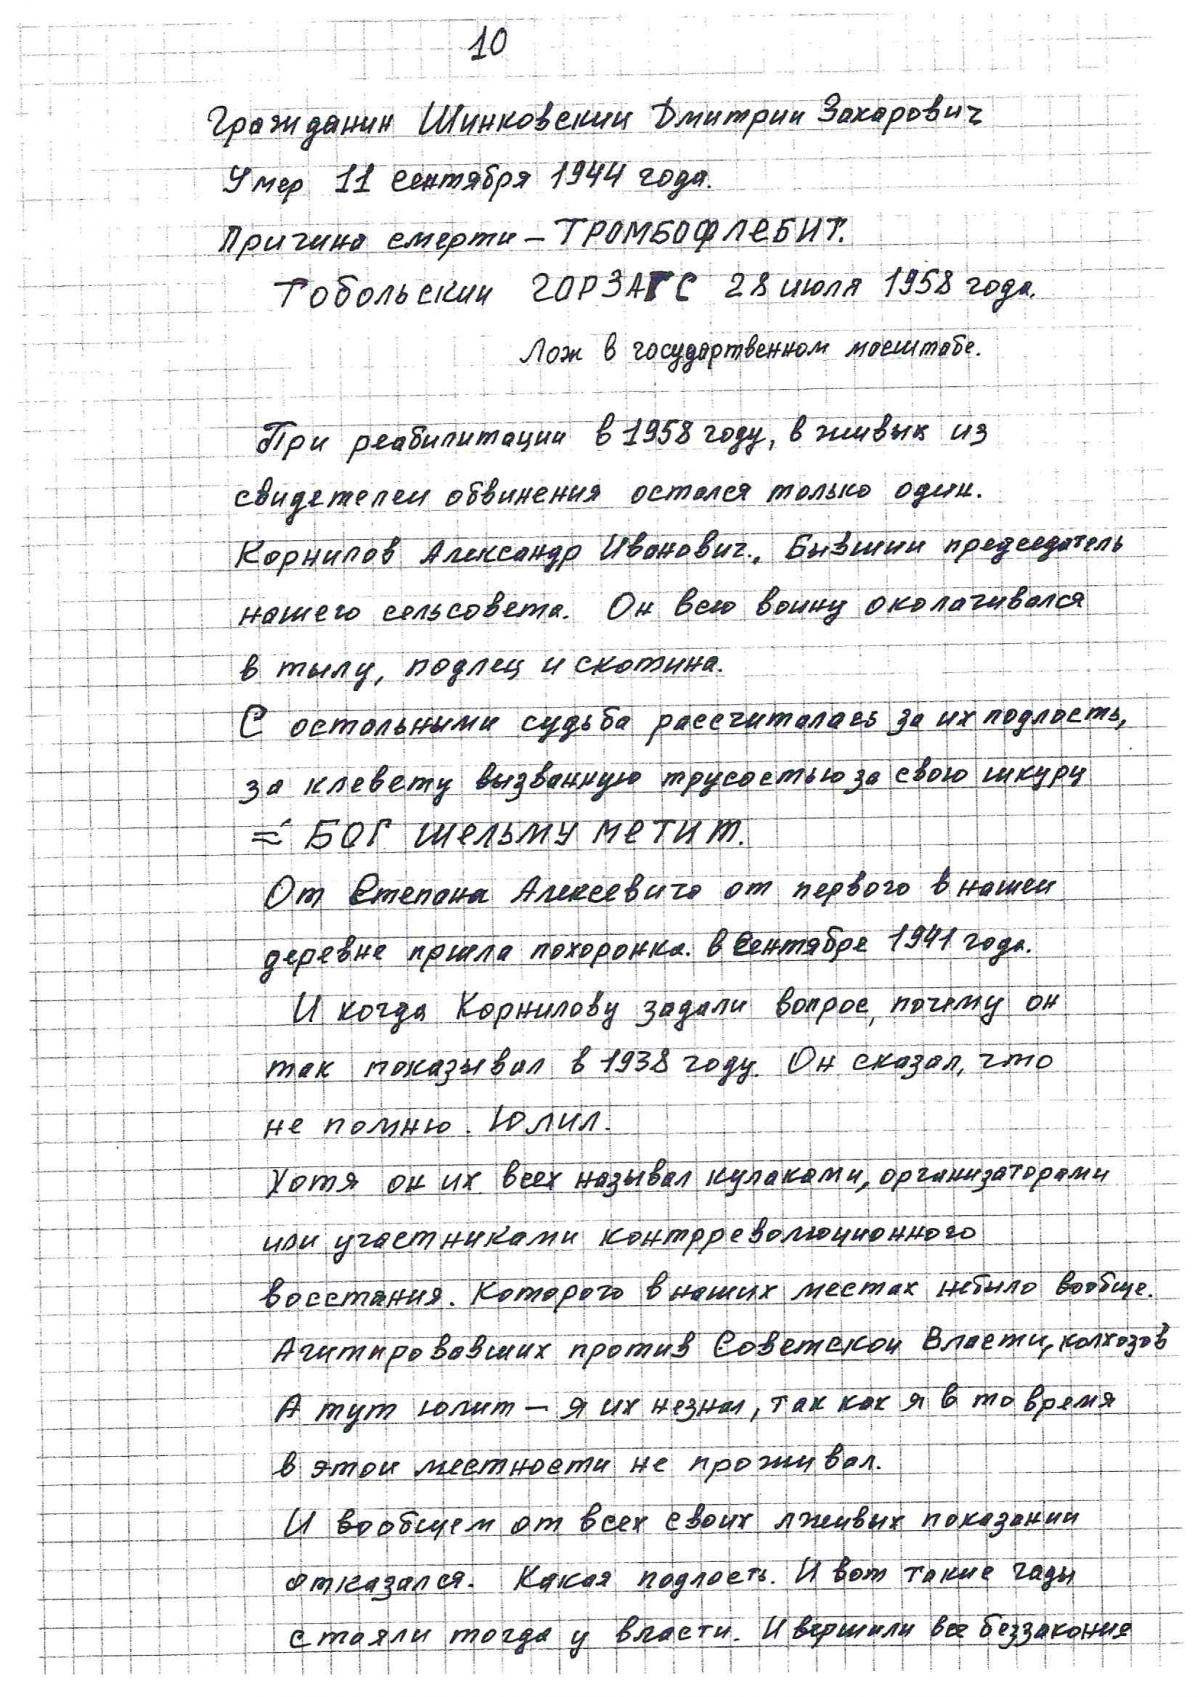 10
Гражданин Шинковскии Дмитрии Захарович
Умер 11 сентября 1944 года.
Причина смерти – ТРОМБОФЛЕБИТ.
Тобольскии ГОРЗАГС 28 июля 1958 года.
Лож в государтвенном масштабе.
При реабилитации в 1958 году, в живых из
свидетелеи обвинения остался только один.
Корнилов Александр Иванович., Бывшии председатель
нашего сельсовета. Он всю воину околачивался
в тылу, подлец и скотина.
С остальными судьба рассчиталась за их подлость,
за клевету вызванную трусостью за свою шкуру
= БОГ ШЕЛЬМУ МЕТИТ.
От Степана Алексеевича от первого в нашеи
деревне пришла похоронка. в Сентябре 1941 года.
И когда Корнилову задали вопрос, почему он
так показывал в 1938 году. Он сказал, что
не помню. Юлил.
Хотя он их всех называл кулаками, организаторами
или участниками контрреволюционного
восстания. Которого в наших местах небыло вообще.
Агитировавших против Советскои Власти, колхозов
А тут юлит – я их незнал, так как я в то время
в этои местности не проживал.
И вообщем от всех своих лживых показании
отказался. Какая подлость. И вот такие гады
стояли тогда у власти. И вершили все беззакония